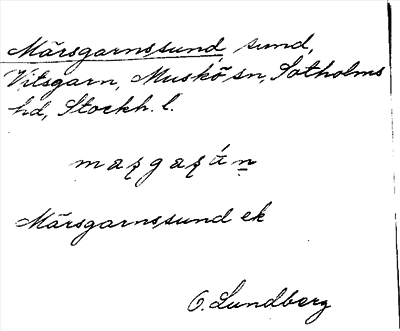 Märsgarnssund, sund,
Vitsgarn, Muskö sn, Sotholms
hd, Stockh. l.
Märsgarnssund ek
O. Lundberg